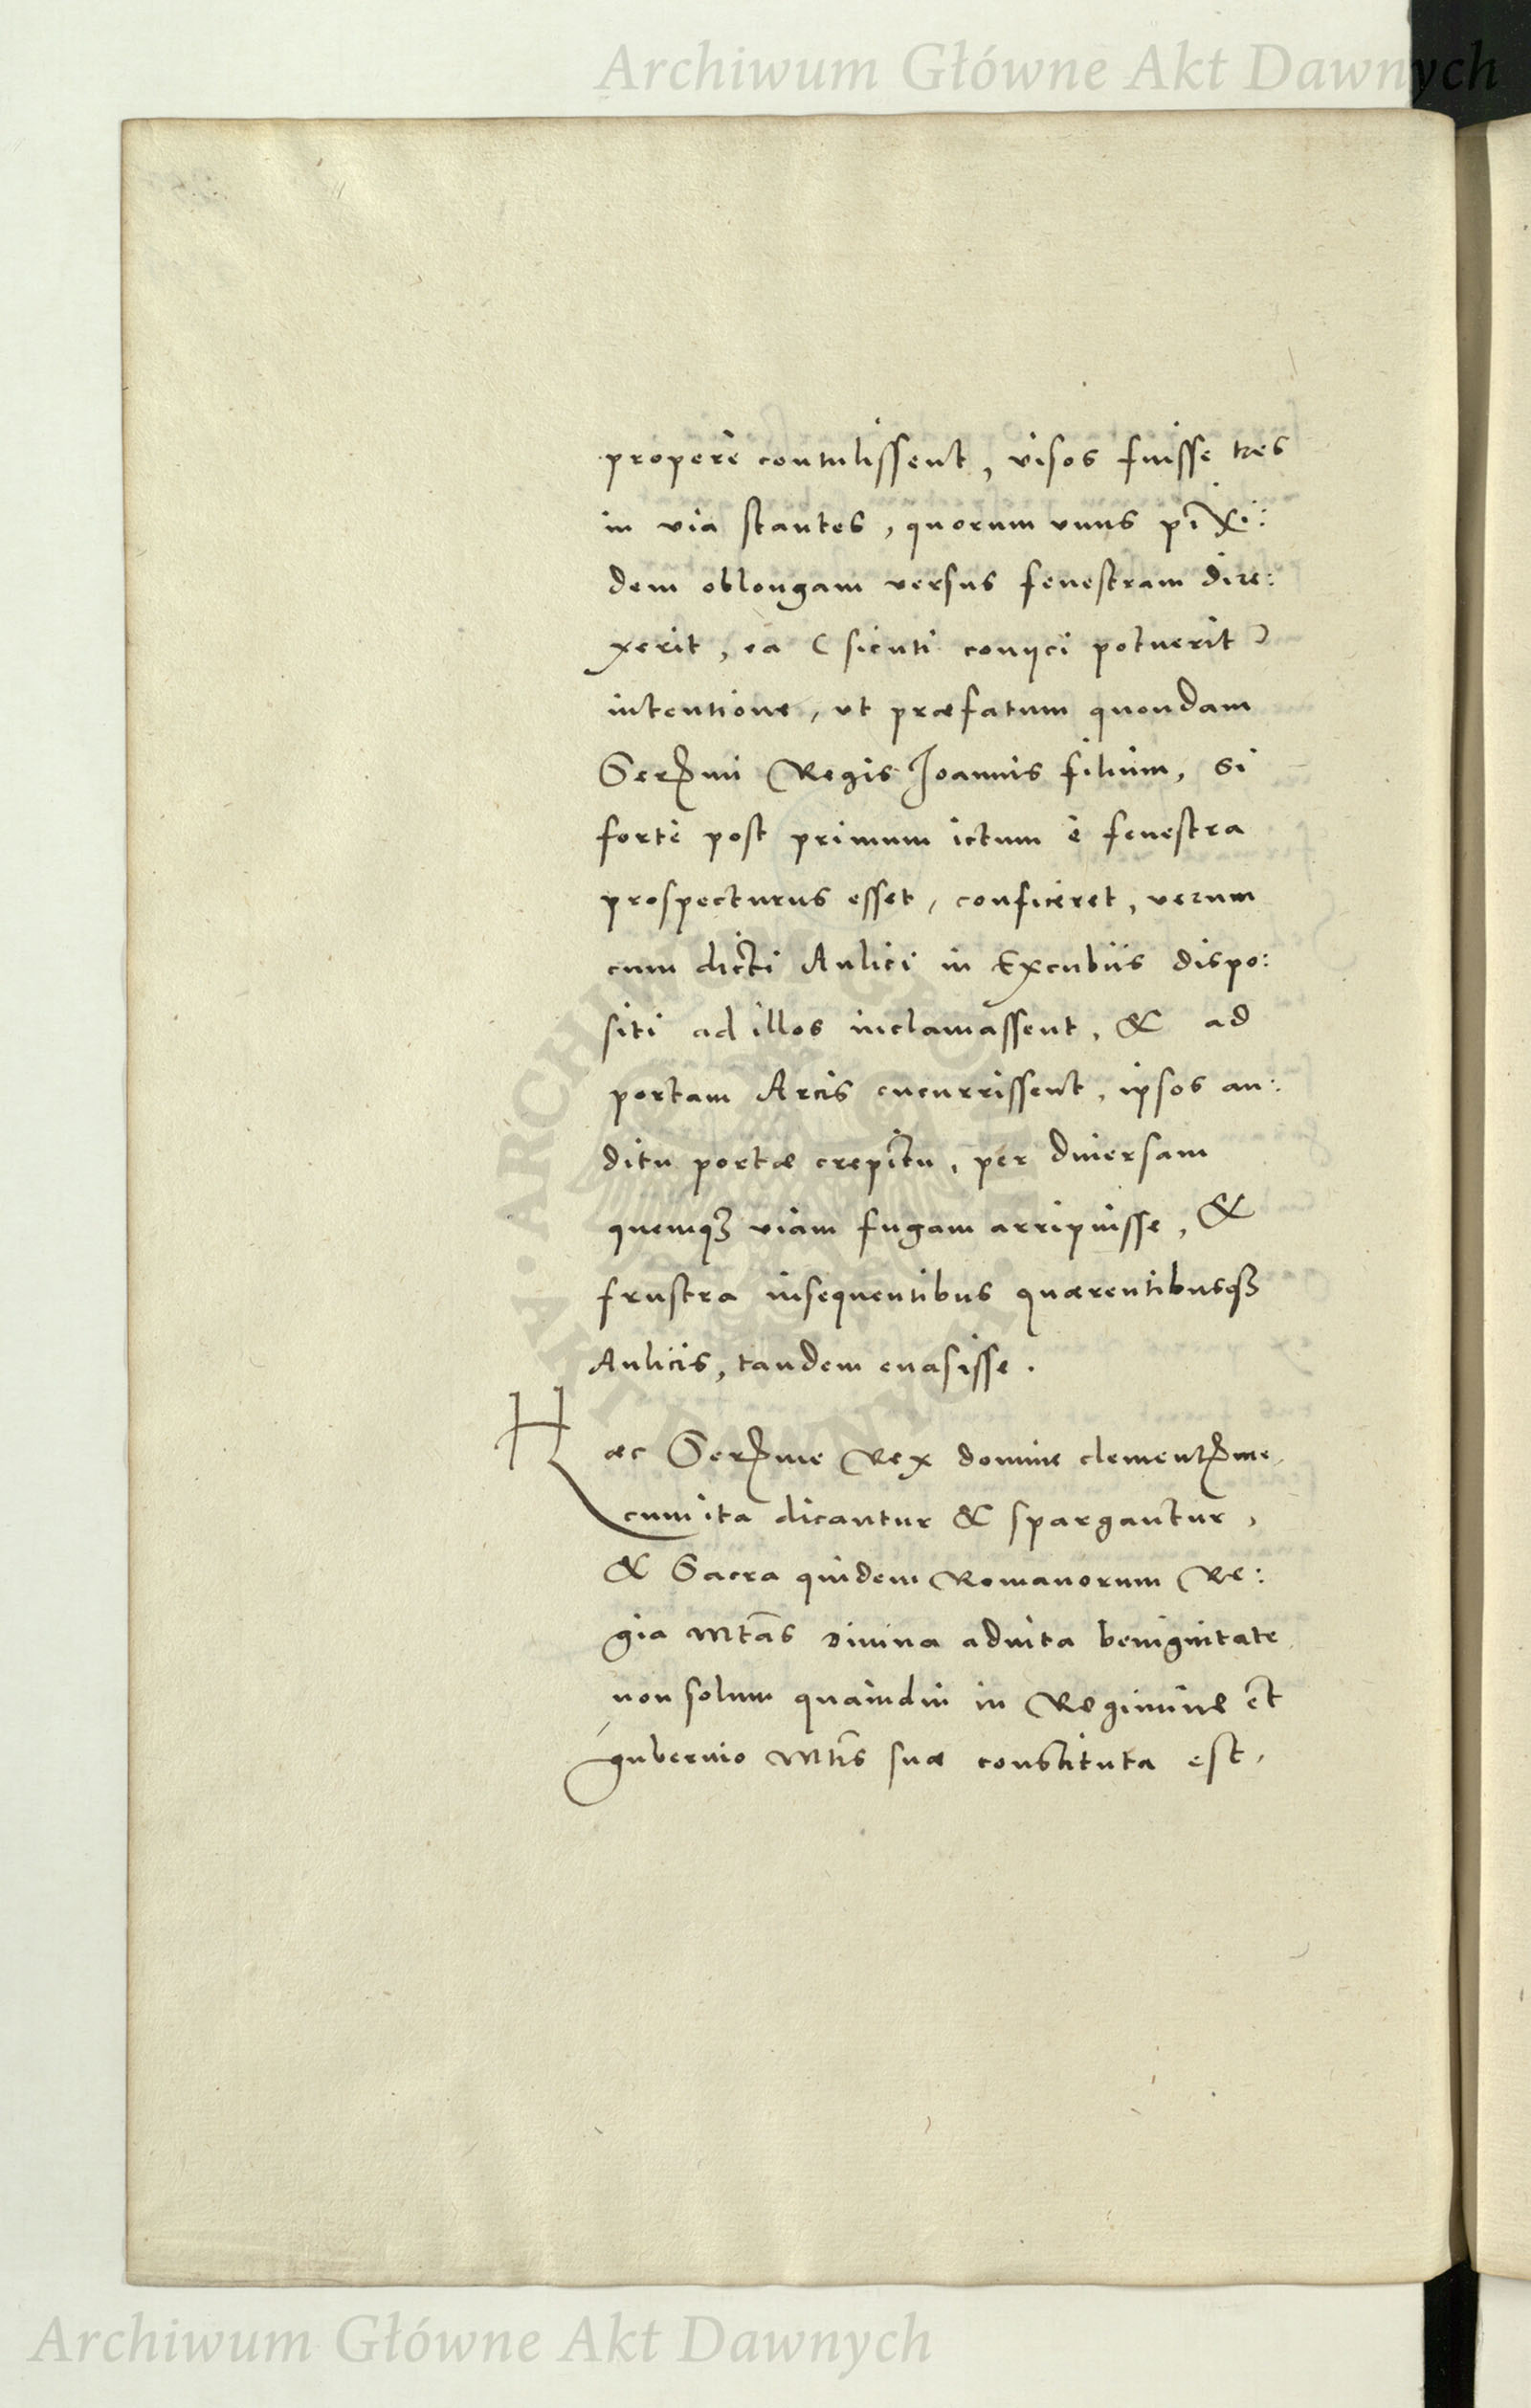 Archiwum Główne Akt Dawnych
properè contulissent, visos fuisse tres
in via stantes, quorum vnus pixi:
dem oblongam versus fenestram dire:
xerit, ea (sicuti conijci potuerit)
intentione, vt præfatum quondam
Serᵐⁱ Regis Joannis filium, si
fortè post primum ictum è fenestra
prospecturus esset, conficeret, verum
cum dicti Aulici in Excubiis dispo:
siti ad illos inclamassent, & ad
portam Arcis cucurrissent, ipsos au:
ditu portæ crepitu, per diuersam
quemqꝫ viam fugam arripuisse, &
frustra insequentibus quærentibusqꝫ
Aulicis, tandem euasisse.
Hæc Serᵐᵉ Rex domine clementᵐᵉ,
cum ita dicantur & spargantur,
& Sacra quidem Romanorum Re:
gia Mtas diuina adiuta benignitate
non solum quamdiu in Regimine et
gubernio Mtis suæ constituta est,
ARCHIWUM GŁÓWNE AKT DAWNYCH
Archiwum Główne Akt Dawnych